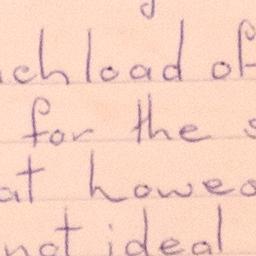 ch load of
for the s
at howeo
not ideal